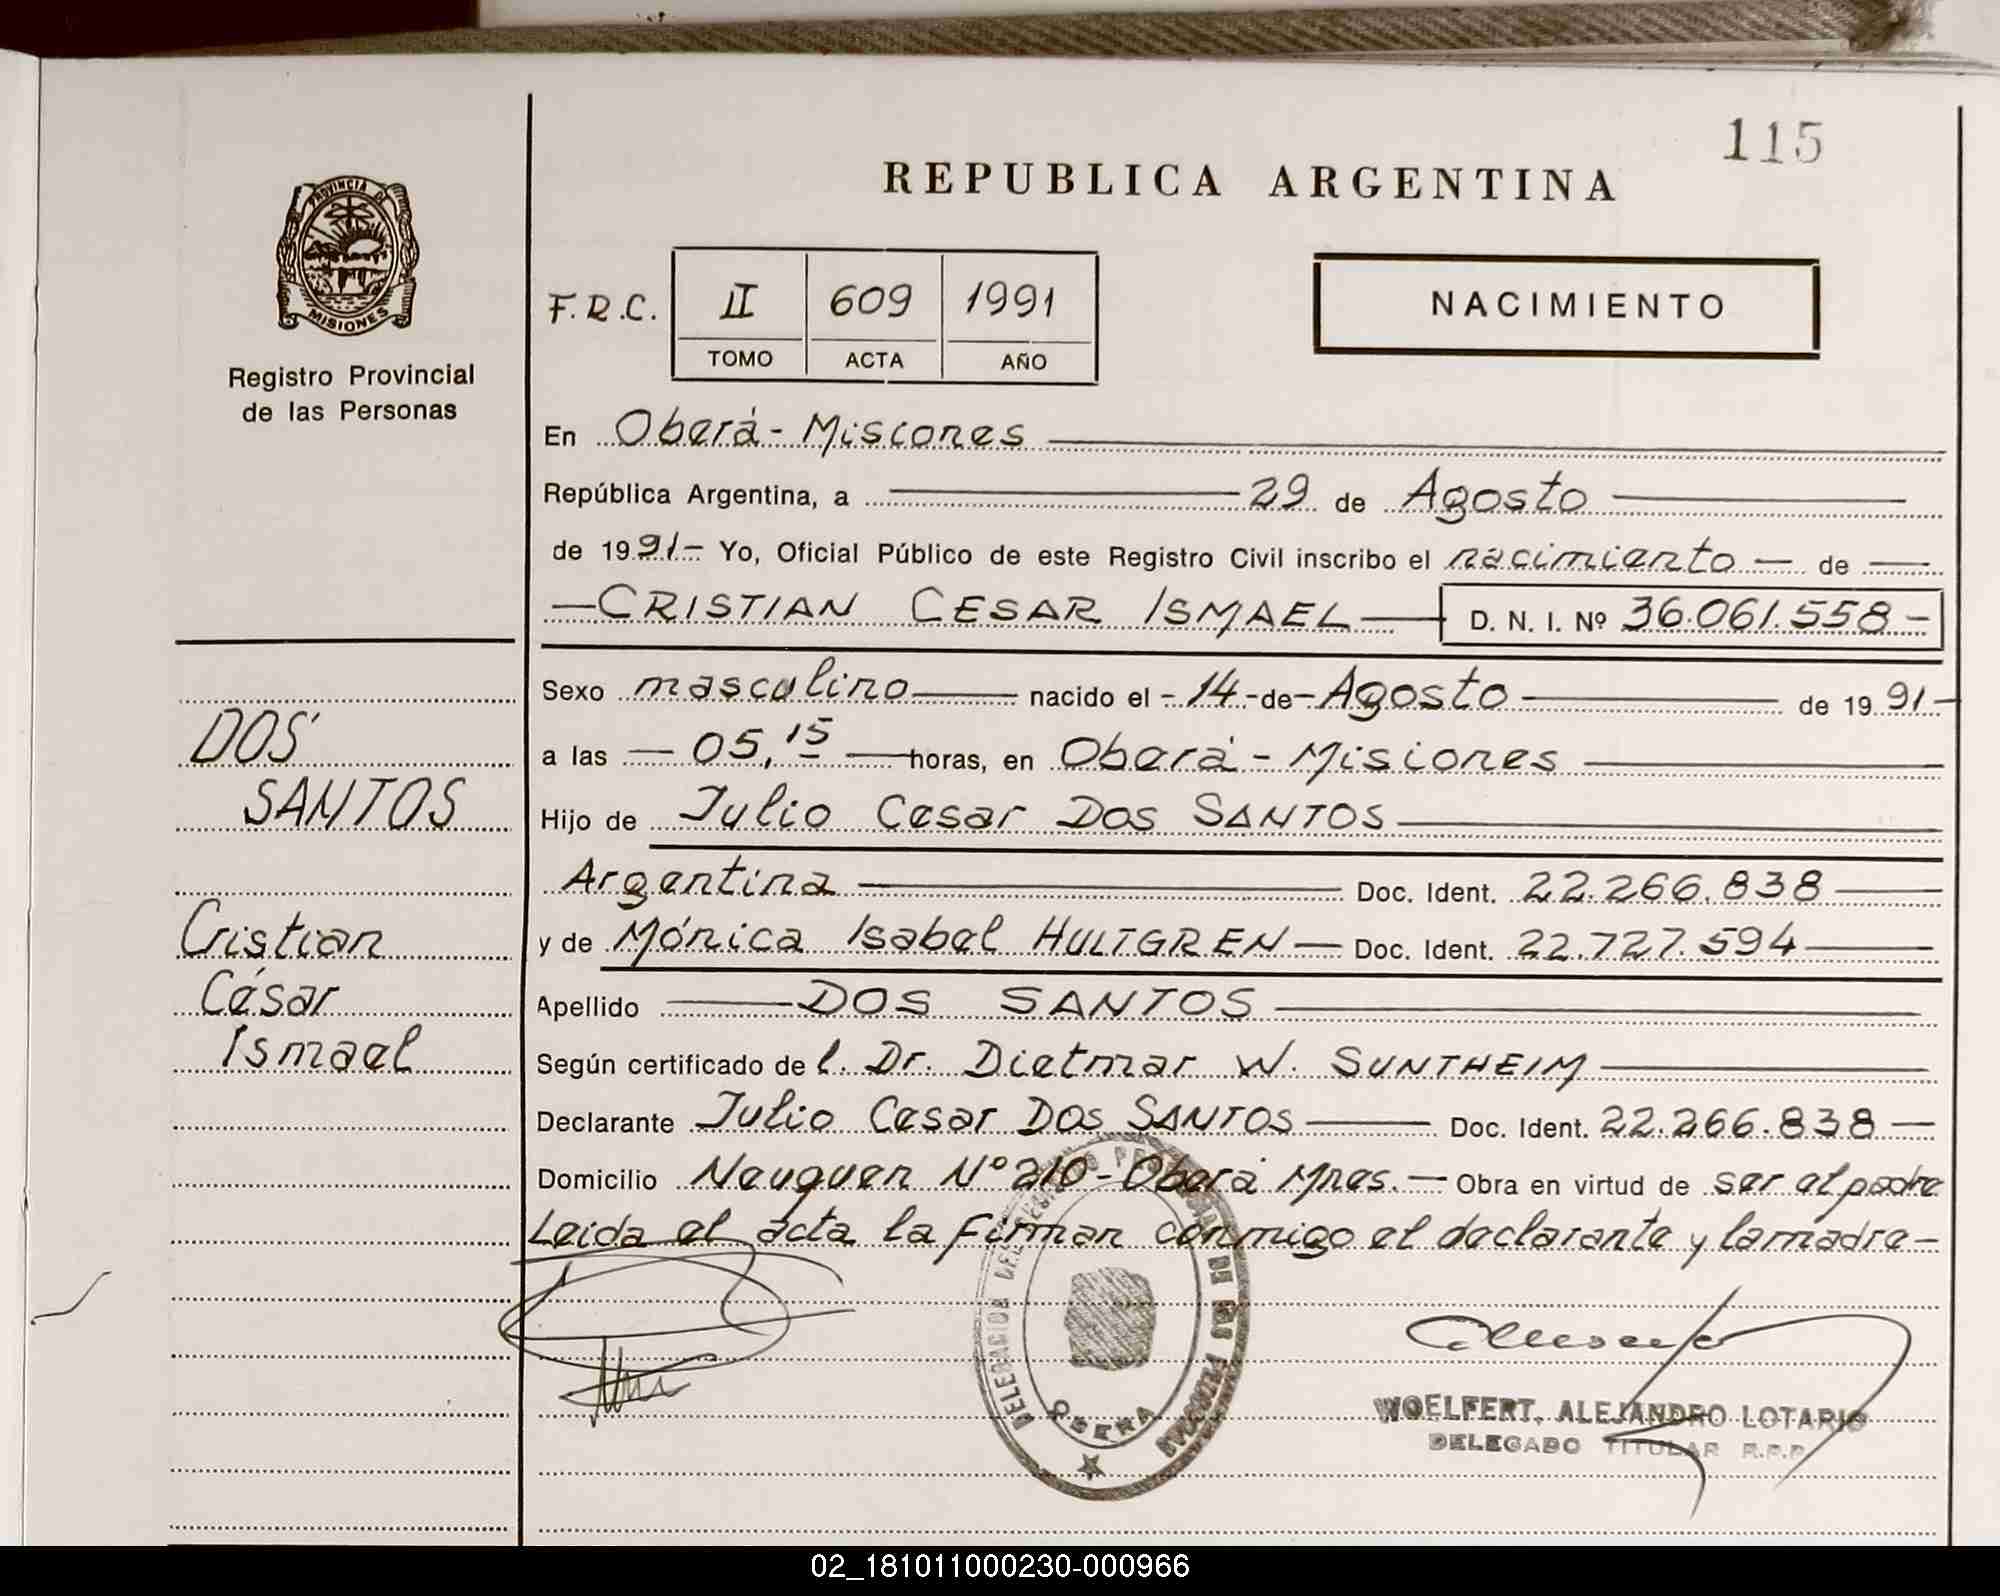 115
REPUBLICA ARGENTINA
PROVINCIA DE
MISIONES
Registro Provincial
de las Personas
F.R.C. II 609 1991
TOMO ACTA AÑO
NACIMIENTO
En Oberá - Misiones
República Argentina, a 29 de Agosto
de 1991- Yo, Oficial Público de este Registro Civil inscribo el nacimiento — de —
— CRISTIAN CESAR ISMAEL — D. N. I. Nº 36.061.558 -
Sexo masculino nacido el - 14 - de - Agosto de 1991 -
DOS
SANTOS
a las — 05,15 — horas, en Oberá - Misiones
Hijo de Julio Cesar Dos SANTOS
Argentina Doc. Ident. 22.266.838
Cristian
César
Ismael
y de Mónica Isabel HULTGREN — Doc. Ident. 22.727.594
Apellido DOS SANTOS
Según certificado del. Dr. Dietmar W. SUNTHEIM
Declarante Julio Cesar Dos SANTOS Doc. Ident. 22.266.838 —
Domicilio Neuquen Nº 210 - Oberá Mnes. — Obra en virtud de ser el padre
Leida el acta la firman conmigo el declarante y la madre -
DELEGACION DEL REGISTRO PROVINCIAL DE LAS PERSONAS
OBERA
WOELFERT, ALEJANDRO LOTARIO
DELEGADO TITULAR R.P.P.
02_181011000230-000966